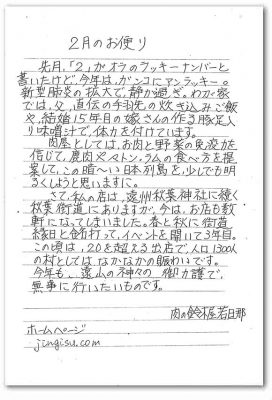 2月のお便り
先月、「2」がオラのラッキーナンバーと
書いたけど、今年は、ガンコにアンラッキー。
新型肺炎の拡大で、静か過ぎ。わが家
では、父直伝の手羽先の炊き込みご飯
や、結婚15年目の嫁さんの作る豚足入
り味噌汁で、体力を付けています。
肉屋としては、お肉と野菜の免疫力を
信じて、鹿肉やマトン、ラムの食べ方を提
案して、この暗〜い日本列島を、少しでも明
るくしようと思いますに。
さて、私の店は、遠州秋葉神社に続く
秋葉街道にありますが、今は、お店も数
軒になってしまいました。春と秋に街道
縁日と銘打って、イベントを開いて3年目。
この頃は、20を超える出店で、人口1300人
の村としては、なかなかの賑わいです。
今年も、遠山の神々の御加護で、
無事に行いたいものです。
肉の鈴木屋 若旦那
ホームページ
jingisu.com